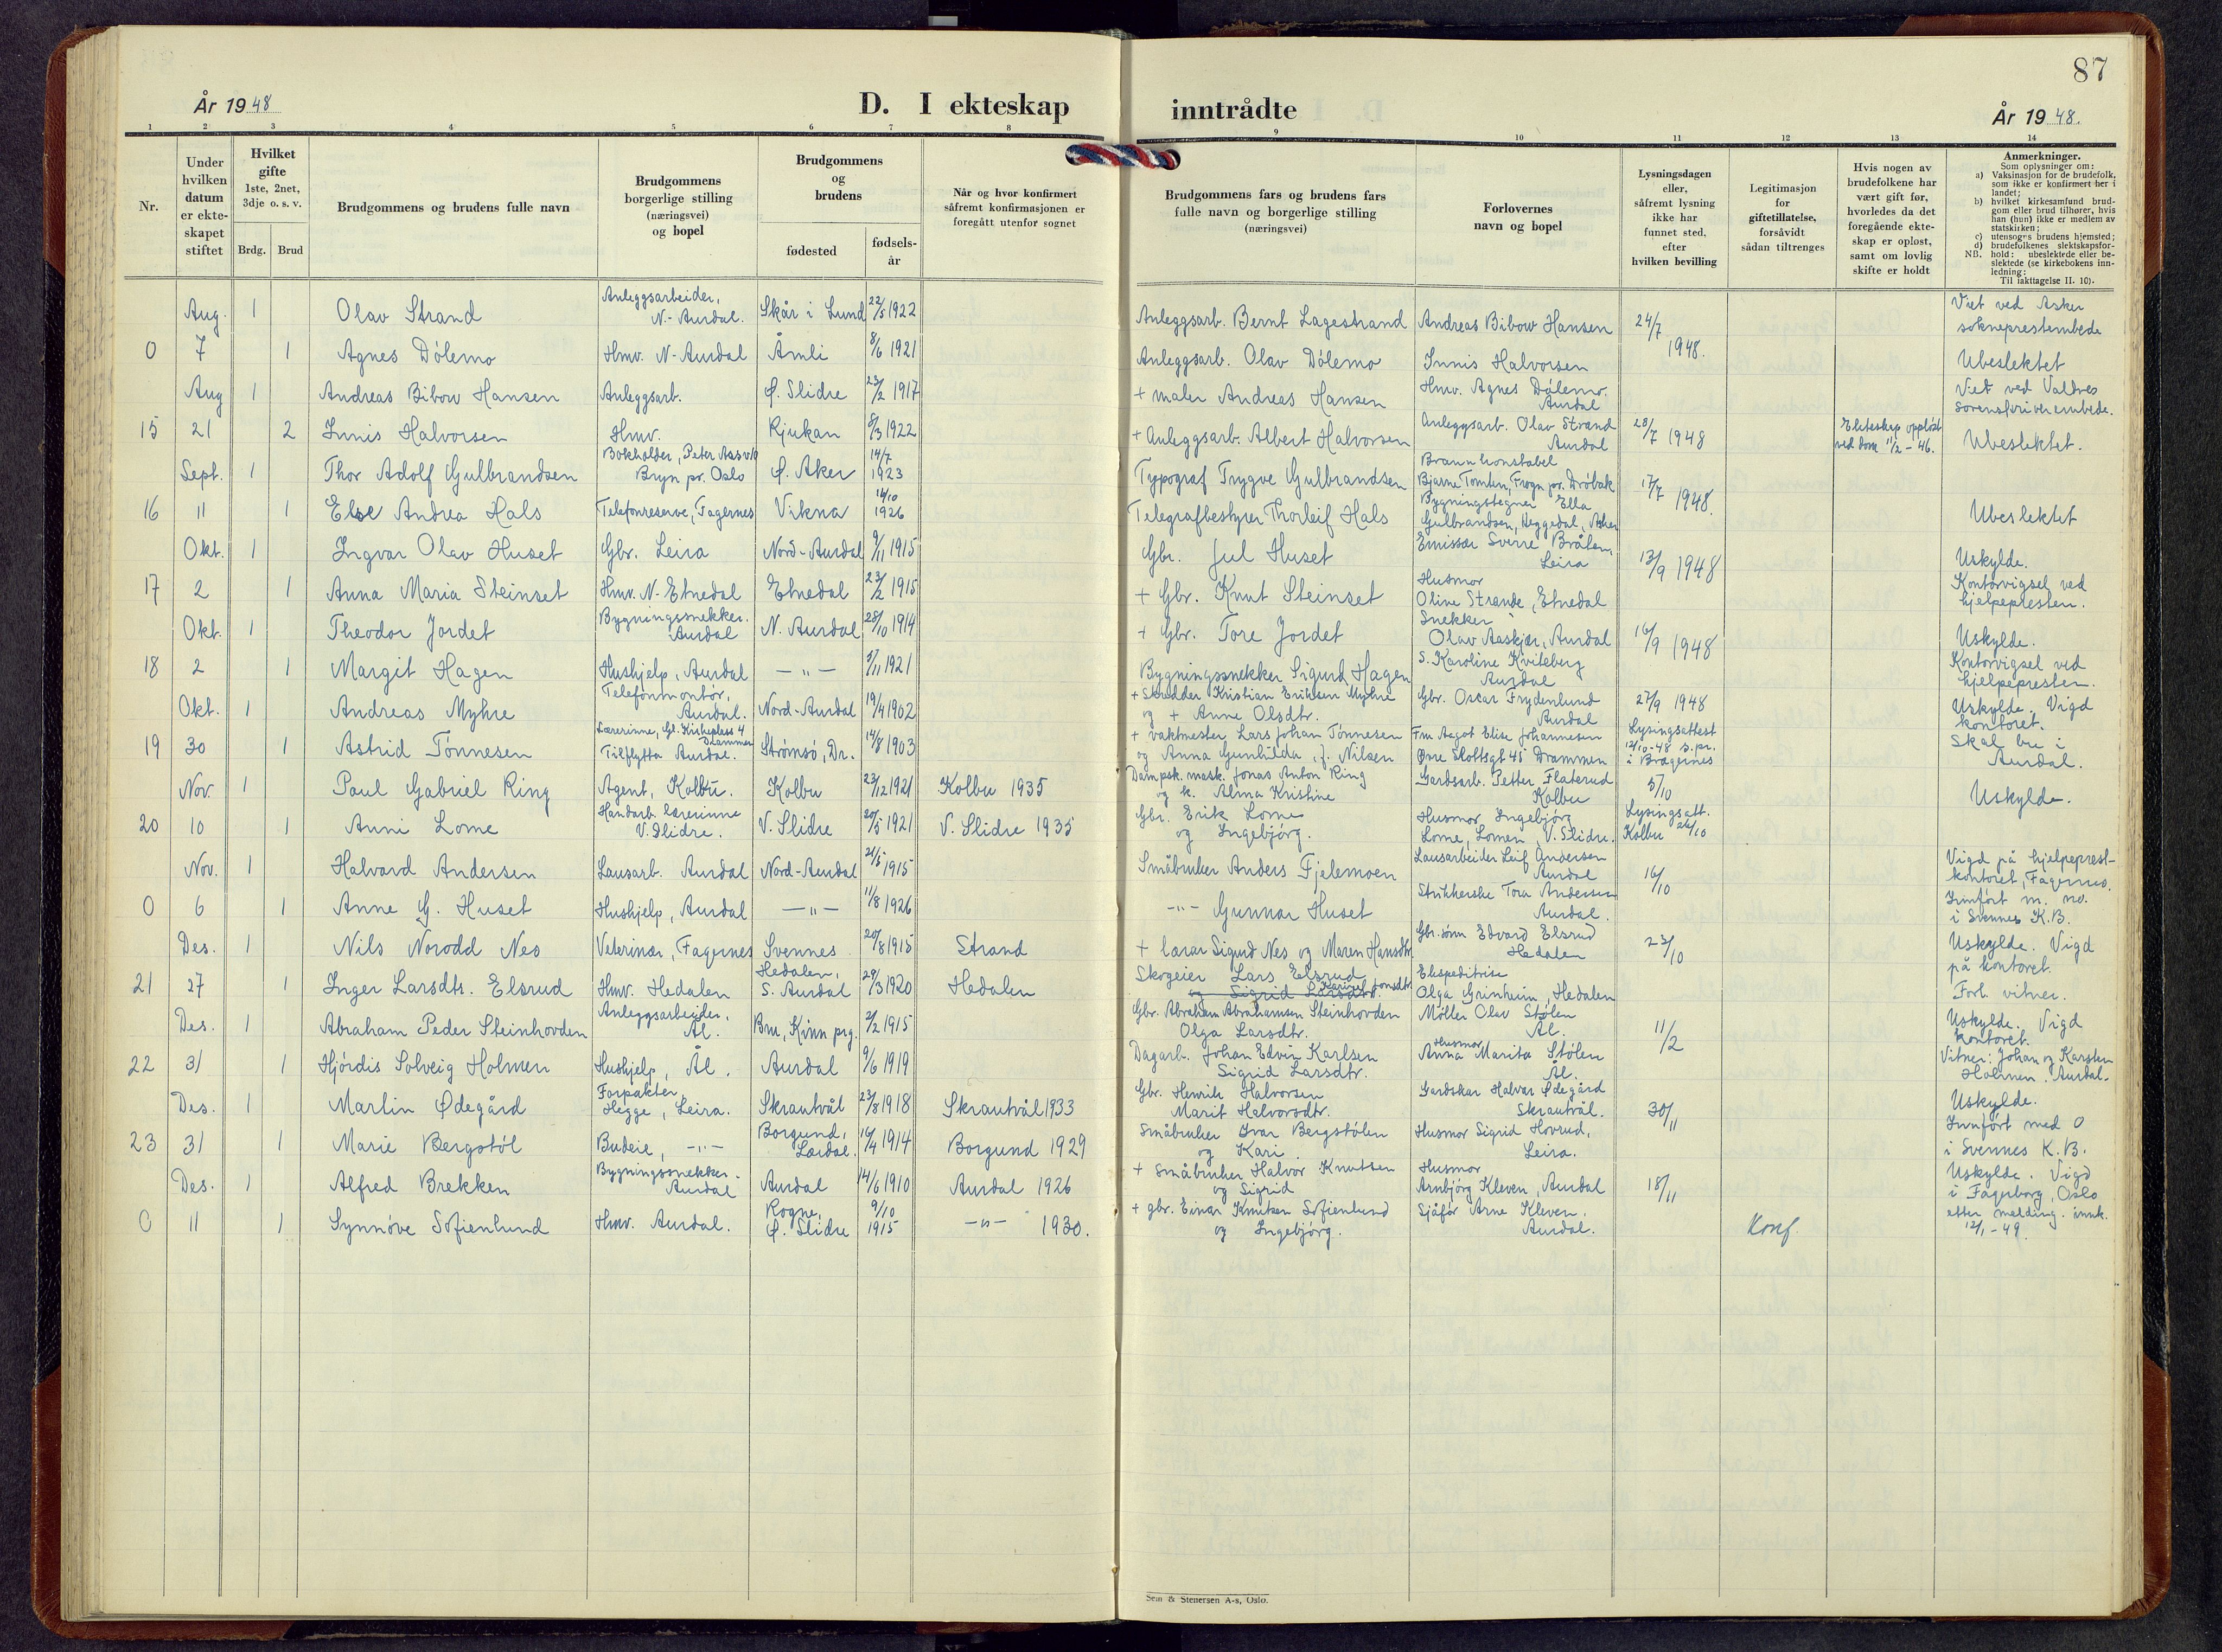 87
År 1948
D. I ekteskap inntrådte
År 1948.
1 2 3 4 5 6 7 8 9 10 11 12 13 14
Nr.
Under hvilken datum er ekteskapet stiftet
Hvilket gifte 1ste, 2net, 3dje o. s. v.
Brdg. Brud
Brudgommens og brudens fulle navn
Brudgommens borgerlige stilling (næringsvei) og bopel
Brudgommens og brudens
fødested
fødselsår
Når og hvor konfirmert såfremt konfirmasjonen er foregått utenfor sognet
Brudgommens fars og brudens fars fulle navn og borgerlige stilling (næringsvei)
Forlovernes navn og bopel
Lysningsdagen eller, såfremt lysning ikke har funnet sted, efter hvilken bevilling
Legitimasjon for giftetillatelse, forsåvidt sådan tiltrenges
Hvis nogen av brudefolkene har vært gift før, hvorledes da det foregående ekteskap er opløst, samt om lovlig skifte er holdt
Anmerkninger.
Som oplysninger om:
a) Vaksinasjon for de brudefolk, som ikke er konfirmert her i landet;
b) hvilket kirkesamfund brudgom eller brud tilhører, hvis han (hun) ikke er medlem av statskirken;
c) utensogns brudens hjemsted;
d) brudefolkenes slektskapsforhold: ubeslektede eller beslektede (se kirkebokens innledning:
NB. Til iakttagelse II. 10).
Aug. 1 Olav Strand Anleggsarbeider, N.-Aurdal. Skår i Lund 22/5 1922 Anleggsarb. Bernt Lagestrand Andreas Bibow Hansen 24/7 1948. Viet ved Asker sokneprestembede
0 7 1 Agnes Dölemo Hmv. N-Aurdal Åmli 8/6 1921 Anleggsarb. Olav Dölemo Innis Halvorsen Ubeslektet
Aug 1 Andreas Bibow Hansen Anleggsarb. Ø. Slidre 23/2 1917 + maler Andreas Hansen Hmv. Agnes Dölemo. Aurdal Viet ved Valdres sorenskriverembede.
15 21 2 Innis Halvorsen Hmv. Rjukan 8/3 1922 + Anleggsarb. Albert Halvorsen Anleggsarb. Olav Strand Aurdal 28/7 1948 Ekteskap opplöst ved dom 11/2 - 46. Ubeslektet.
Sept. 1 Thor Adolf Gulbrandsen Bokholder, Bryn pr. Oslo Ø. Aker 14/7 1923 Typograf Trygve Gulbrandsen Brannkonstabel Bjarne Tomten, Frogn pr. Dröbak 17/7 1948.
16 11 1 Else Andrea Hals Telefonreserve, Fagernes Vikna 1926 Telegrafbestyrer Thorleif Hals Bygningstegner Ella Gulbrandsen, Heggedal, Asker Ubeslektet
Okt. 1 Ingvar Olav Huset Gbr. Leira Nord-Aurdal 9/11 1915 Gbr. Jul Huset Emissær Sverre Bråten, Leira 13/9 1948 Uskylde.
17 2 1 Anna Maria Steinset Hmv. N-Etnedal Etnedal 23/2 1915 + Gbr. Knut Steinset Husmor Oline Strande, Etnedal Kontorvigsel ved hjelpepresten.
Okt. 1 Theodor Jordet Bygningssnekker. Aurdal N. Aurdal 28/10 1914 + Gbr. Tore Jordet Snekker Olav Aaskjær, Aurdal 16/9 1948 Uskylde.
18 2 1 Margit Hagen Hushjelp, Aurdal — " — 3/11 1921 Bygningssnekker Sigurd Hagen S. Karoline Kviteberg Aurdal Kontorvigsel ved hjelpepresten.
Okt. 1 Andreas Myhre Telefonmontör, Aurdal. Nord-Aurdal 19/4 1902 + Skredder Kristian Eriksen Myhre og + Anne Olsdtr. Gbr. Oscar Frydenlund Aurdal 27/9 1948 Uskylde. Vigd kontoret.
19 30 1 Astrid Tönnesen Lærerinne, Gl. Kirkeplass 4 Drammen Tilflytta Aurdal. Strömsö, Dr. 14/8 1903 + vaktmester Lars Johan Tönnesen og Anna Gunhilda, f. Nilsen Fru Aagot Elise Johannesen Övre Slottsgt 45 Drammen Lysingsattest 12/10-48 s.pr. i Bragernes Skal bu i Aurdal.
Nov. 1 Paul Gabriel Ring Agent, Kolbu. Kolbu 23/12 1921 Kolbu 1935 Dampsk. mask. Jonas Anton Ring og k. Alma Kristine Gardsarb. Petter Flaterud Kolbu 5/10 Uskylde.
20 10 1 Anni Lome Handarb. lærerinne V. Slidre. V. Slidre 20/5 1921 V. Slidre 1935 Gbr. Erik Lome og Ingebjörg. Husmor Ingebjörg Lome, Lomen, V. Slidre. Lysingsatt. Kolbu 26/10
Nov. 1 Halvard Andersen Lausarb. Aurdal Nord-Aurdal 21/5 1915 Småbruker Anders Fjelemoen Lausarbeider Leif Andersen Aurdal 16/10 Vigd på hjelpeprestkontoret, Fagernes.
0 6 1 Anne G. Huset Hushjelp, Aurdal — " — 11/8 1926 - " - Gunnar Huset Strikkerske Tora Andersen Aurdal. Innfört m. no. i Svennes K.B.
Des. 1 Nils Norodd Nes Veterinær, Fagernes Svennes 20/8 1915 Strand + lærar Sigurd Nes og Maren Hansdtr. Gbr. sönn Edvard Elsrud Hedalen 23/10 Uskylde. Vigd på kontoret.
21 27 1 Inger Larsdtr. Elsrud Hmv. Hedalen Hedalen, S. Aurdal 29/3 1920 Hedalen Skogeier Lars Elsrud og Sigrid Larsdtr. Jonsdtr. Ekspeditrise Olga Grinheim, Hedalen Forl. vitner.
Des. 1 Abraham Peder Steinhovden Anleggsarbeider, Ål. Bru, Kinn prg. 2/2 1915 Gbr. Abraham Abrahamsen Steinhovden Olga Larsdtr. Möller Olav Stölen Ål. 11/2 Uskylde. Vigd kontoret.
22 31 1 Hjördis Solveig Holmen Hushjelp, Ål. Aurdal 9/6 1919 Dagarb. Johan Edvin Karlsen Sigrid Larsdtr. Husmor Anna Marita Stölen Ål. Vitner: Johan og Karsten Holmen. Aurdal.
Des. 1 Martin Ødegård Forpakter, Hegge, Leira. Skrautvål 23/8 1918 Skrautvål 1933 Gbr. Henrik Halvorsen Marit Halvorsdtr. Gardskar Halvar Ødegård Skrautvål. 30/11 Uskylde.
23 31 1 Marie Bergstöl Budeie, - " - Borgund, Lærdal. 16/4 1914 Borgund 1929 Småbruker Ivar Bergstölen og Kari Husmor Sigrid Hovrud, Leira. Innfört med 0 i Svennes K.B.
Des. 1 Alfred Brekken Bygningssnekker. Aurdal Aurdal 14/6 1910 Aurdal 1926 + Småbruker Halvor Knutsen og Sigrid Husmor Arnbjörg Kleven, Aurdal 18/11 Uskylde. Vigd i Fagerborg, Oslo
0 11 1 Synnöve Sofienlund Hmv. Aurdal. Rogne, Ø. Slidre 9/10 1915 — " — 1930. + gbr. Einar Knutsen Sofienlund og Ingebjörg. Sjåför Arne Kleven. Aurdal. Konf. etter melding. innk. 12/1 - 49.
Sem & Stenersen A-s, Oslo.